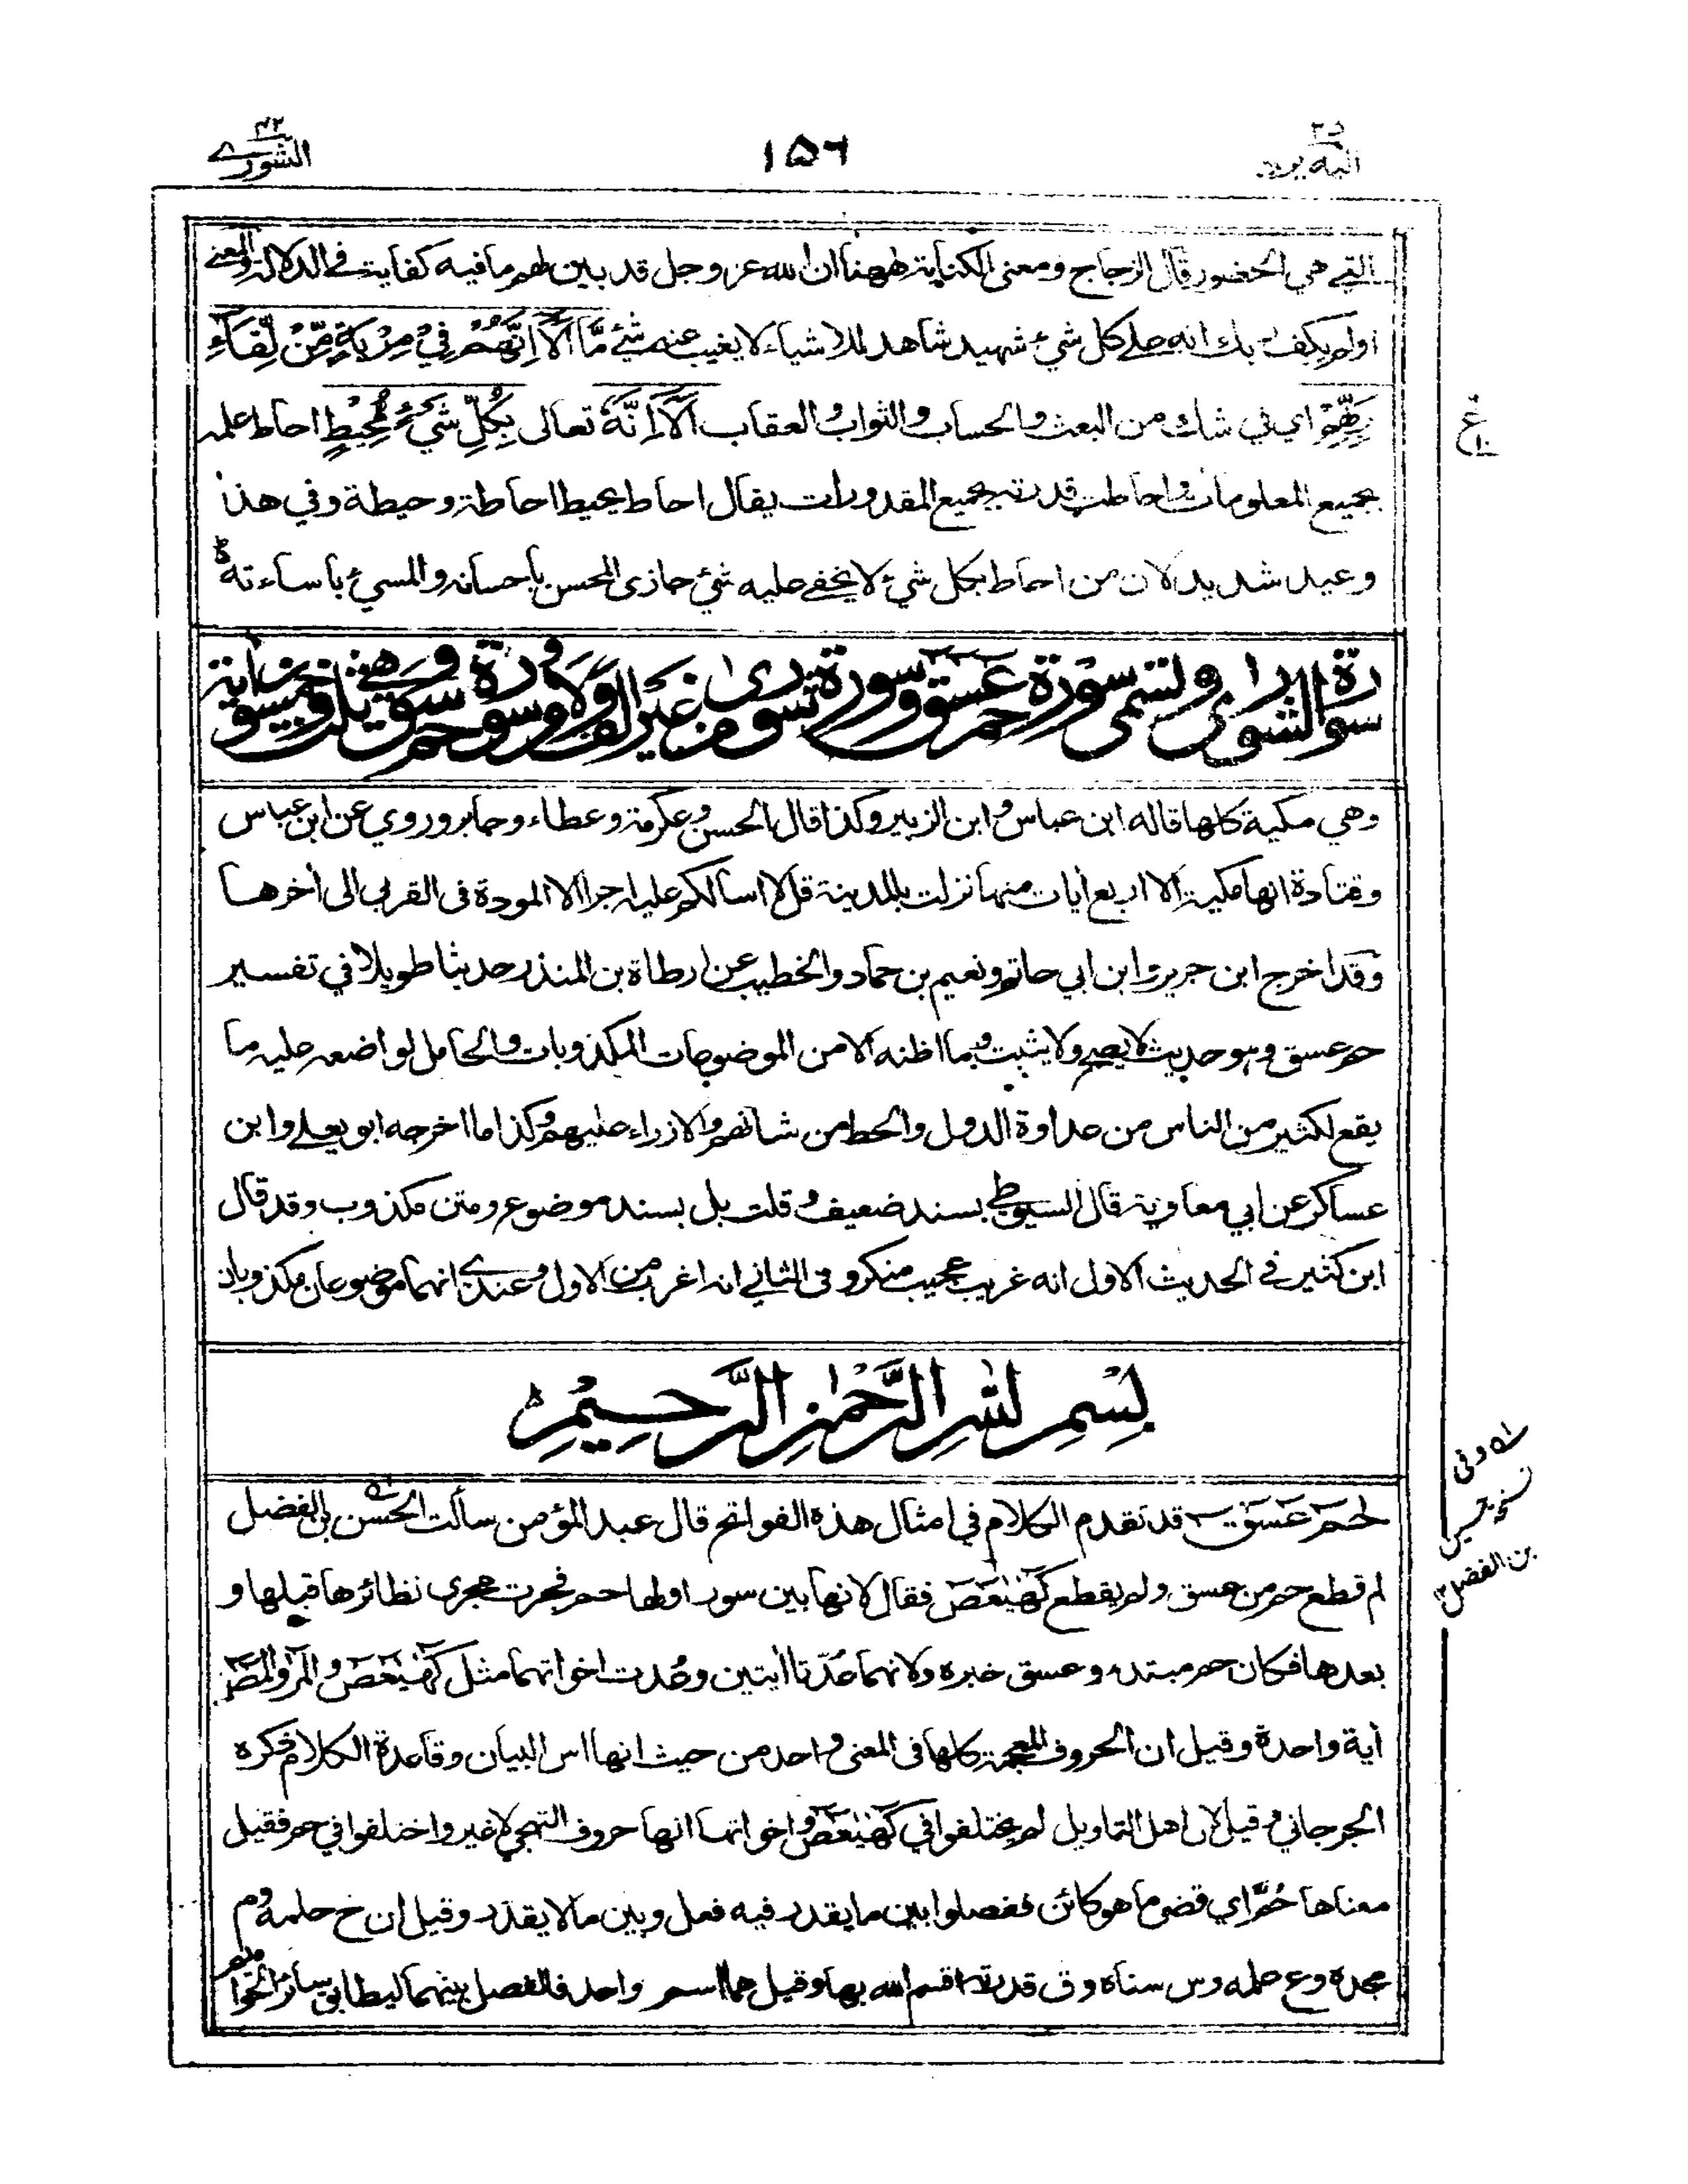 اليه يرد ٢٥
١٥٦
الشورے ٤٢
التي هي الحضور قال الزجاج ومعنى الكناية ههنا ان الله عز وجل قد بين لهم ما فيه كفاية في الدلالة والمعنى
اولم يكف بربك انه على كل شيء شهيد شاهد للاشياء لا يغيب عنه شئ مّا اَلَآ اِنَّهُمْ فِيْ مِرْيَةٍ مِّنْ لِّقَآءِ
رَبِّهِمْ اي في شك من البعث والحساب والثواب والعقاب اَلَآ اِنَّهٗ تعالى بِكُلِّ شَيْءٍ مُّحِيْطٌ احاط علمه
بجميع المعلومات واحاطت قدرته بجميع المقدورات يقال احاط يحيط احاطة وحيطة وفي هذا
وعيد شديد لان من احاط بكل شيء لا يخفى عليه شيء جازى المحسن باحسانه والمسيء باساءته
سورة الشورى وتسمى سورة حم عسق وسورة شورى من غير الف ولام وسورة حم سق وهي ثلاث وخمسون اية
وهي مكية كلها قاله ابن عباس وابن الزبير وكذا قال الحسن وعكرمة وعطاء وجابر وروي عن ابن عباس
وقتادة انها مكية الا اربع أيات منها نزلت بالمدينة قل لا اسالكم عليه اجرا الا المودة فى القربى الى أخرها
وقد اخرج ابن جرير وابن ابي حاتم ونعيم بن حماد والخطيب عن ارطاة بن المنذر حديثا طويلا في تفسير
حم عسق وهو حديث لا يصح ولا يثبت وما اظنه الا من الموضوعات المكذوبات والحامل لواضعه عليه ما
يقع لكثير من الناس من عداوة الدول والحط من شانهم والازراء عليهم وكذا ما اخرجه ابو يعلى وابن
عساكر عن ابي معاوية قال السيوطي بسند ضعيف قلت بل بسند موضوع ومتن مكذوب وقد قال
ابن كثير في الحديث الاول انه غريب عجيب منكر وفى الثاني انه اغرب من الاول وعندي انهما موضوعان مكذوبان
بِسْمِ اللهِ الرَّحْمٰنِ الرَّحِيْمِ
حٰمٓ عٓسٓقٓ قد تقدم الكلام في امثال هذه الفواتح قال عبد المؤمن سألت الحسن بن الفضل
لم قطع حم من عسق ولم يقطع كهيعص فقال لانها بين سور اولها حم فجرت مجرى نظائرها قبلها و
بعدها فكان حم مبتدء وعسق خبره ولانهما عُدّتا أيتين وعُدت اخواتهما مثل كهيعص والمر والمص
أية واحدة وقيل ان الحروف المعجمة كلها فى المعنى واحد من حيث انها اس البيان وقاعدة الكلام ذكره
الجرجاني وقيل لان اهل التاويل لم يختلفوا في كهيعص واخواتها انها حروف التهجي لا غير واختلفوا في حم فقيل
معناها حُمَّ اي قضي ما هو كائن ففصلوا بين ما يقدر فيه فعل وبين ما لا يقدر وقيل ان ح حلمه وم
مجده وع علمه وس سناه وق قدرته اقسم الله بها وقيل هما اسم واحد فالفصل بينهما ليطابق سائر الحواميم
ع
١٠
له وفى
نسخة حسين
بن الفضل ١٢